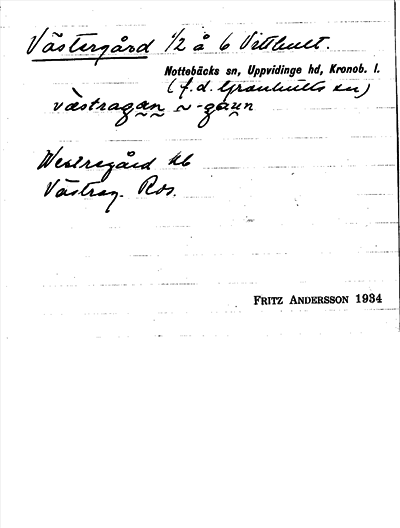 Västergård 1/2 å 6 Vithult.
Nottebäcks sn, Uppvidinge hd, Kronob. l.
(f.d. Granhults sn)
västragan ~ -gaun
Westregård hb
Västrag. Ros.
FRITZ ANDERSSON 1934